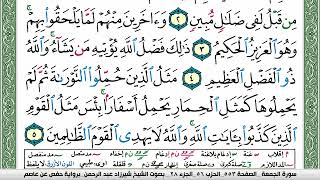 مِن قَبْلُ لَفِى ضَلَٰلٍ مُّبِينٍ ٢ وَءَاخَرِينَ مِنْهُمْ لَمَّا يَلْحَقُوا۟ بِهِمْ
وَهُوَ ٱلْعَزِيزُ ٱلْحَكِيمُ ٣ ذَٰلِكَ فَضْلُ ٱللَّهِ يُؤْتِيهِ مَن يَشَآءُ وَٱللَّهُ
ذُو ٱلْفَضْلِ ٱلْعَظِيمِ ٤ مَثَلُ ٱلَّذِينَ حُمِّلُوا۟ ٱلتَّوْرَىٰةَ ثُمَّ لَمْ
يَحْمِلُوهَا كَمَثَلِ ٱلْحِمَارِ يَحْمِلُ أَسْفَارًۢا بِئْسَ مَثَلُ ٱلْقَوْمِ
ٱلَّذِينَ كَذَّبُوا۟ بِـَٔايَٰتِ ٱللَّهِ وَٱللَّهُ لَا يَهْدِى ٱلْقَوْمَ ٱلظَّٰلِمِينَ ٥
سورة الجمعة الصفحة ٥٥٣ الحزب ٥٦ الجزء ٢٨ بصوت الشيخ شيرزاد عبد الرحمن برواية حفص عن عاصم